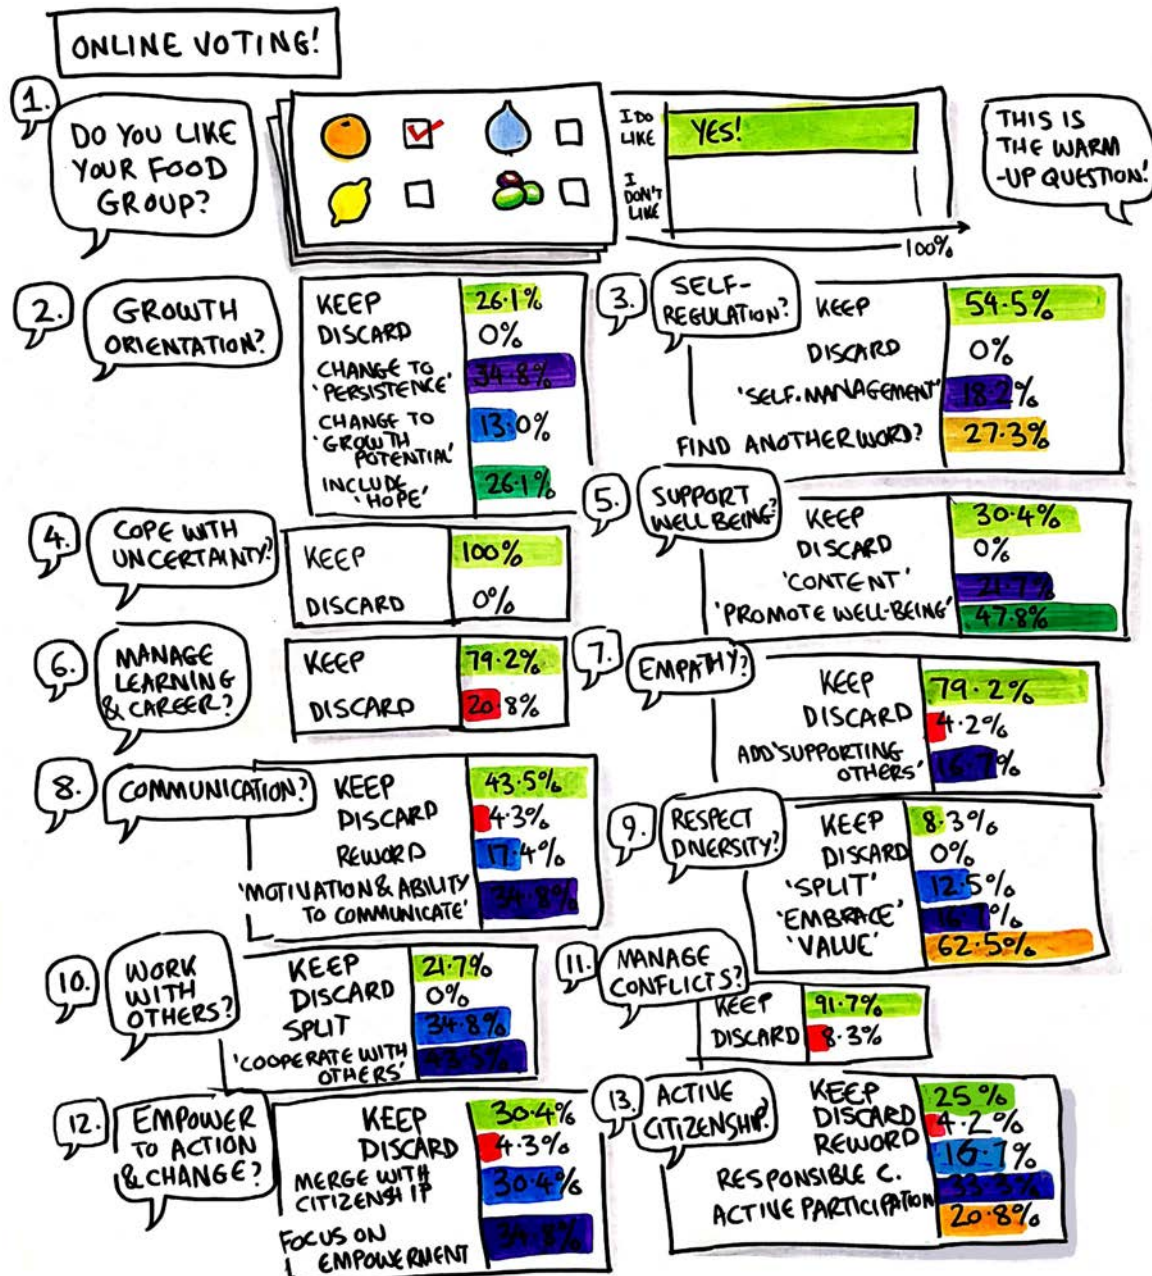 ONLINE VOTING!
1.
DO YOU LIKE
YOUR FOOD
GROUP?
I DO
LIKE
YES!
I
DON'T
LIKE
100%
THIS IS
THE WARM
-UP QUESTION!
2.
GROWTH
ORIENTATION?
KEEP 26.1%
DISCARD 0%
CHANGE TO
'PERSISTENCE' 34.8%
CHANGE TO 13.0%
'GROWTH
POTENTIAL'
INCLUDE
'HOPE' 26.1%
3.
SELF-
REGULATION?
KEEP 54.5%
DISCARD 0%
'SELF.MANAGEMENT' 18.2%
FIND ANOTHER WORD? 27.3%
4.
COPE WITH
UNCERTAINTY?
KEEP 100%
DISCARD 0%
5.
SUPPORT
WELL BEING?
KEEP 30.4%
DISCARD 0%
'CONTENT' 21.7%
'PROMOTE WELL-BEING' 47.8%
6.
MANAGE
LEARNING
& CAREER?
KEEP 79.2%
DISCARD 20.8%
7.
EMPATHY?
KEEP 79.2%
DISCARD 4.2%
ADD 'SUPPORTING
OTHERS' 16.7%
8.
COMMUNICATION?
KEEP 43.5%
DISCARD 4.3%
REWORD 17.4%
'MOTIVATION & ABILITY
TO COMMUNICATE' 34.8%
9.
RESPECT
DIVERSITY?
KEEP 8.3%
DISCARD 0%
'SPLIT' 12.5%
'EMBRACE' 16.7%
'VALUE' 62.5%
10.
WORK
WITH
OTHERS?
KEEP 21.7%
DISCARD 0%
SPLIT 34.8%
'COOPERATE WITH
OTHERS' 43.5%
11.
MANAGE
CONFLICTS?
KEEP 91.7%
DISCARD 8.3%
12.
EMPOWER
TO ACTION
& CHANGE?
KEEP 30.4%
DISCARD 4.3%
MERGE WITH
CITIZENSHIP 30.4%
FOCUS ON
EMPOWERMENT 34.8%
13.
ACTIVE
CITIZENSHIP?
KEEP 25%
DISCARD 4.2%
REWORD 16.7%
RESPONSIBLE C. 33.3%
ACTIVE PARTICIPATION 20.8%